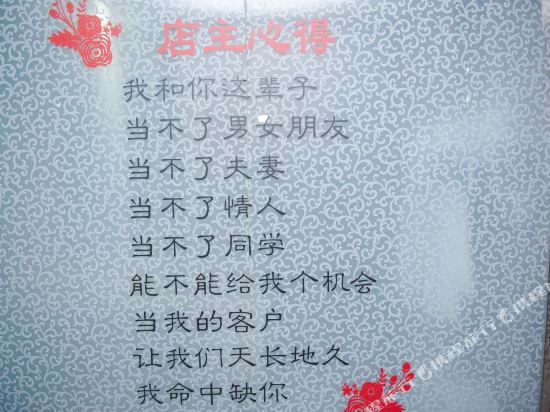 店主心得
我和你这辈子
当不了男女朋友
当不了夫妻
当不了情人
当不了同学
能不能给我个机会
当我的客户
让我们天长地久
我命中缺你
携程旅行